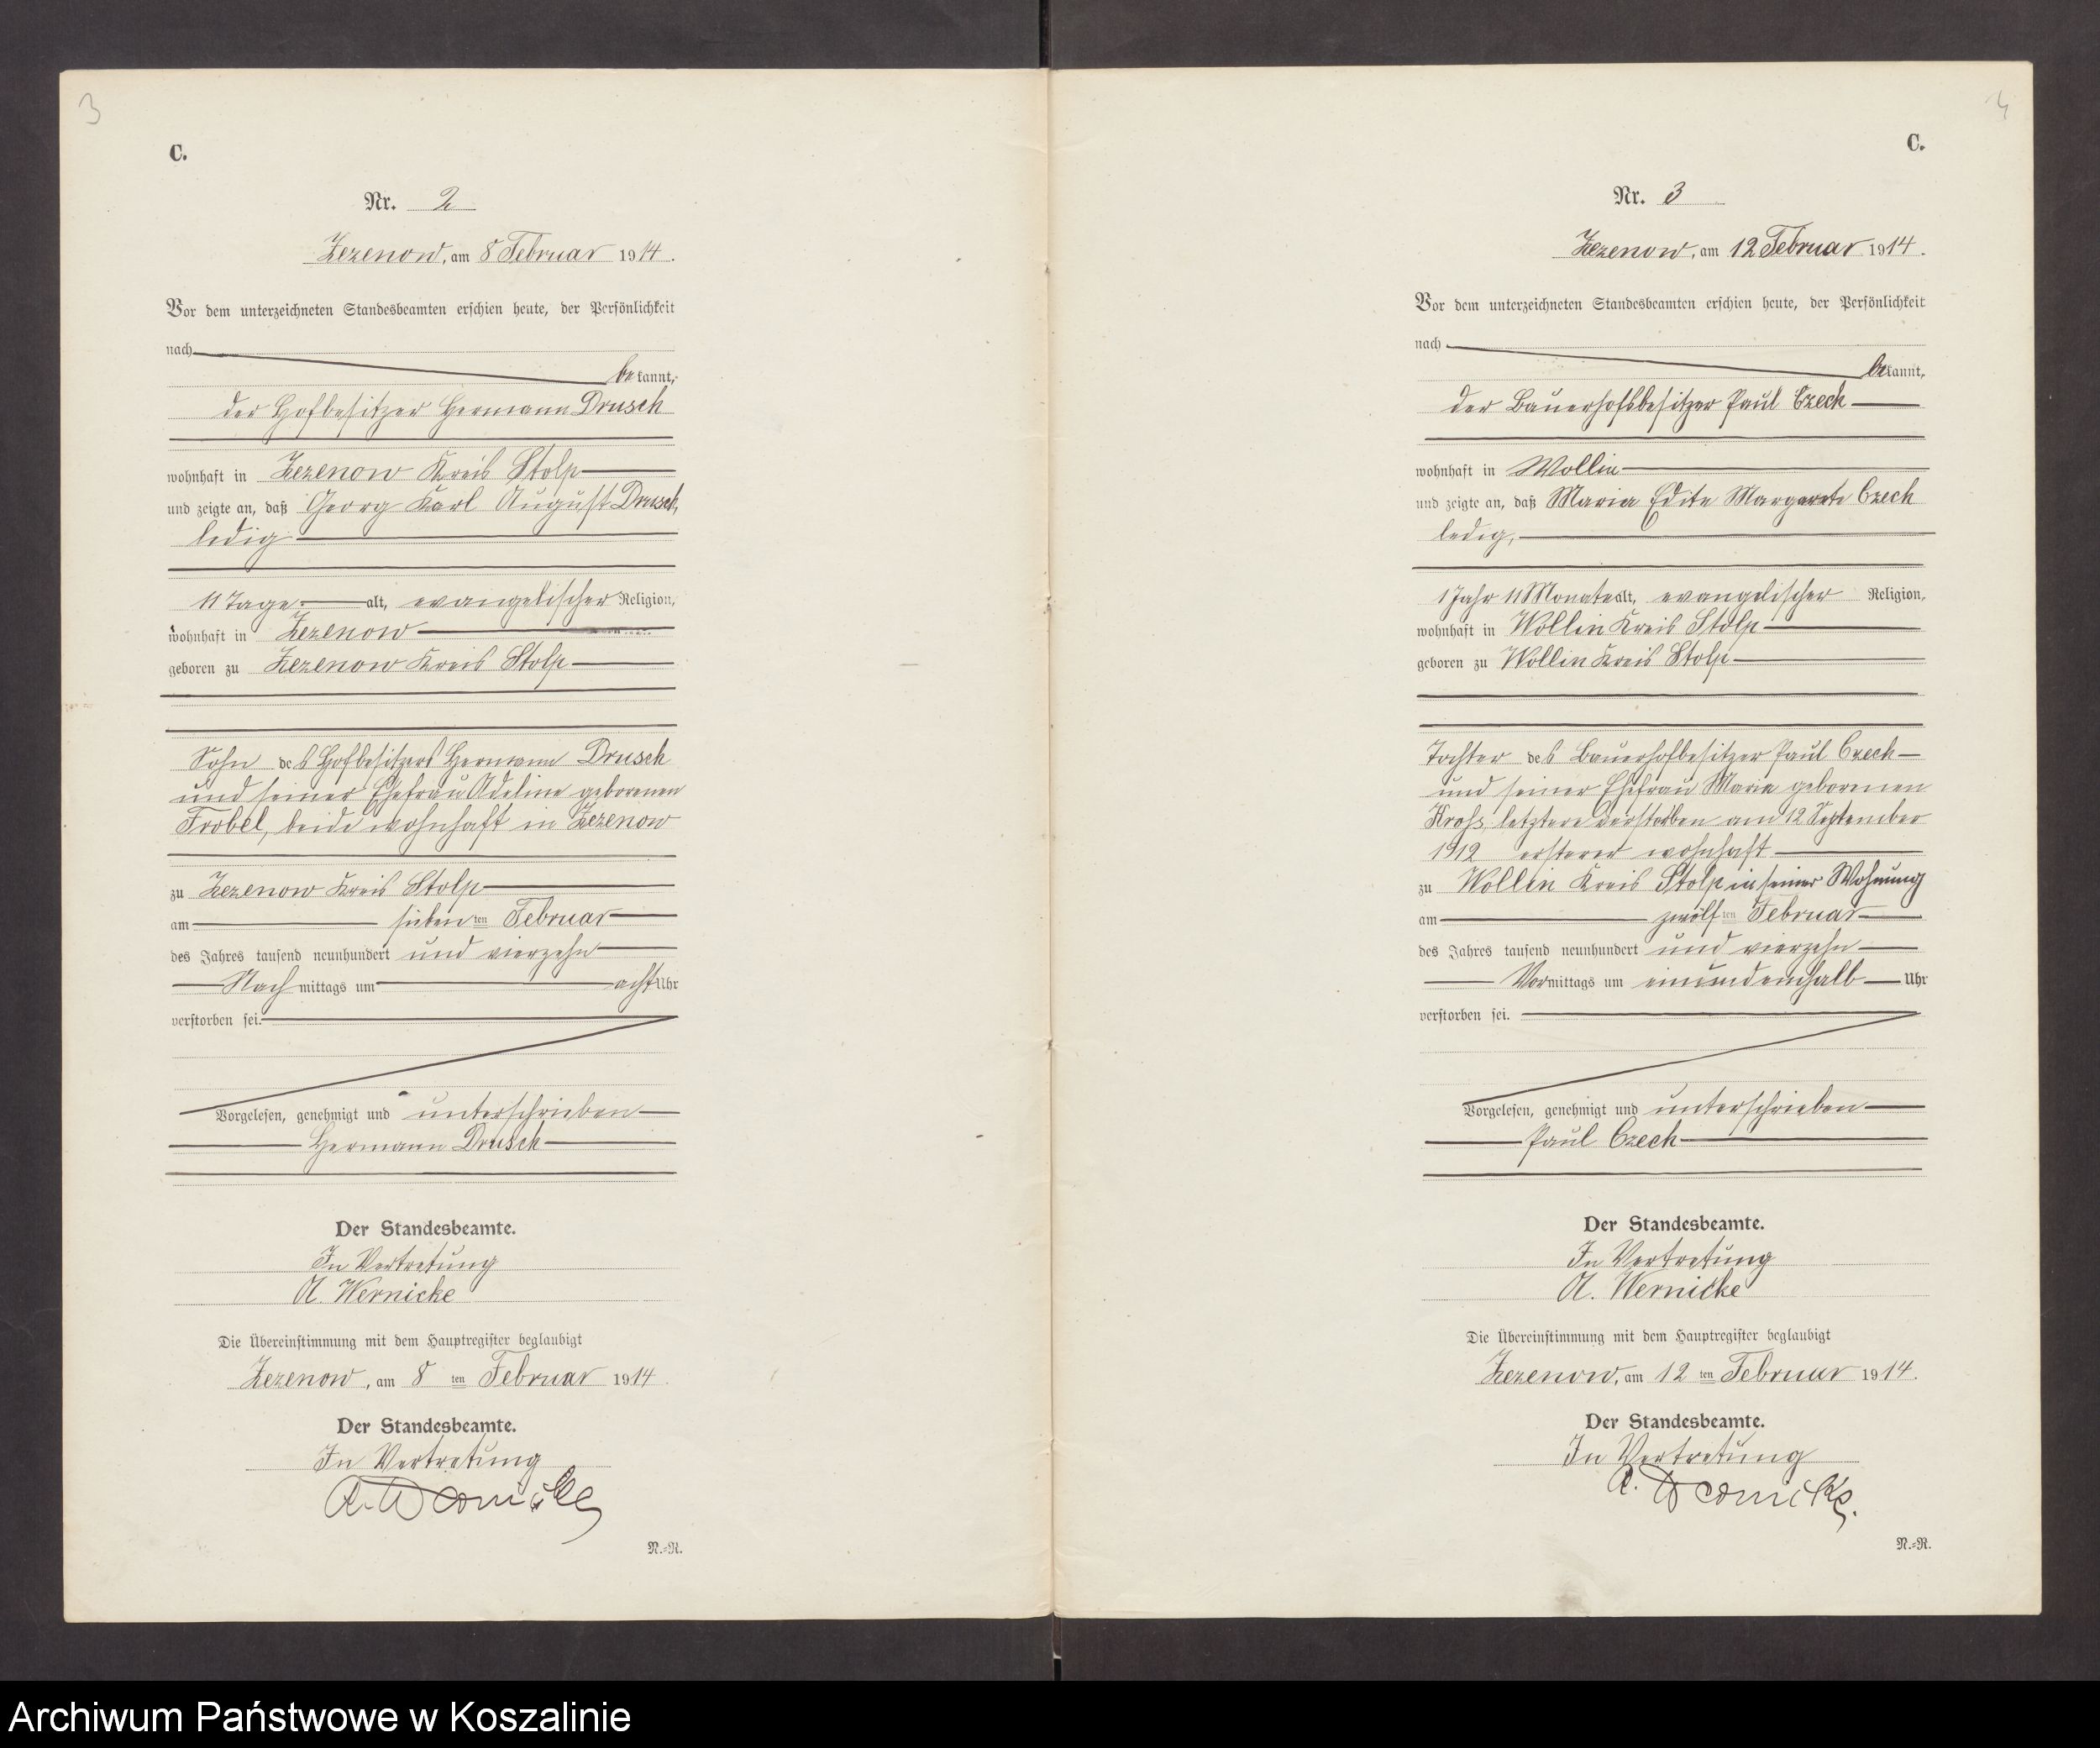 3
C.
Nr. 2
Zezenow, am 8 Februar 1914.
Vor dem unterzeichneten Standesbeamten erschien heute, der Persönlichkeit
nach
bekannt,
der Hofbesitzer Hermann Drusch
wohnhaft in Zezenow Kreis Stolp
und zeigte an, daß Georg Karl August Drusch,
ledig
11 Tage alt, evangelischer Religion,
wohnhaft in Zezenow
geboren zu Zezenow Kreis Stolp
Sohn des Hofbesitzers Hermann Drusch
und seiner Ehefrau Adeline geborenen
Frobel, beide wohnhaft in Zezenow
zu Zezenow Kreis Stolp
am siebenten Februar
des Jahres tausend neunhundert und vierzehn
Nachmittags um acht Uhr
verstorben sei.
Vorgelesen, genehmigt und unterschrieben
Hermann Drusch
Der Standesbeamte.
In Vertretung
A. Wernicke
Die Übereinstimmung mit dem Hauptregister beglaubigt
Zezenow, am 8ten Februar 1914.
Der Standesbeamte.
In Vertretung
A. Wernicke
N.=R.
4
C.
Nr. 3
Zezenow, am 12 Februar 1914.
Vor dem unterzeichneten Standesbeamten erschien heute, der Persönlichkeit
nach
bekannt,
der Bauerhofsbesitzer Paul Czech
wohnhaft in Wollin
und zeigte an, daß Maria Edita Margarete Czech
ledig,
1 Jahr 11 Monate alt, evangelischer Religion,
wohnhaft in Wollin Kreis Stolp
geboren zu Wollin Kreis Stolp
Tochter des Bauerhofbesitzer Paul Czech
und seiner Ehefrau Maria geborenen
letztere verstorben am 12 September
1912 ersterer wohnhaft
zu Wollin Kreis Stolp in seiner Wohnung
am zwölften Februar
des Jahres tausend neunhundert und vierzehn
Vormittags um einundeinhalb Uhr
verstorben sei.
Vorgelesen, genehmigt und unterschrieben
Paul Czech
Der Standesbeamte.
In Vertretung
A. Wernicke
Die Übereinstimmung mit dem Hauptregister beglaubigt
Zezenow, am 12ten Februar 1914.
Der Standesbeamte.
In Vertretung
A. Wernicke.
N.=R.
Archiwum Państwowe w Koszalinie